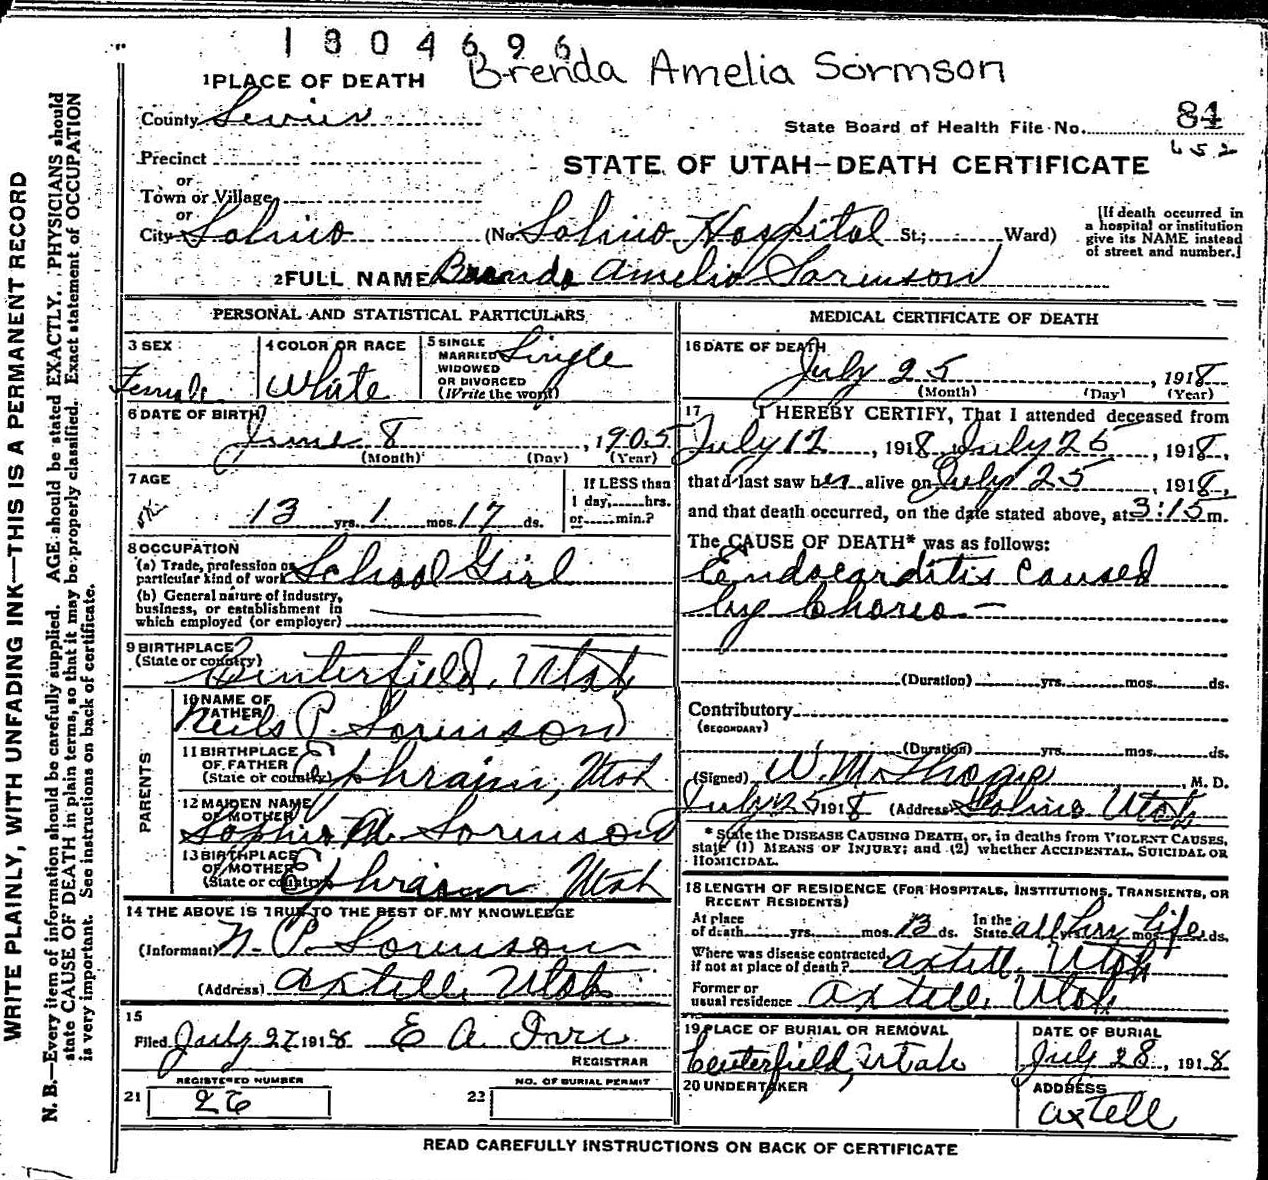 1804696
Brenda Amelia Sormson
1 PLACE OF DEATH
County Sevier
State Board of Health File No. 84
652
Precinct
or
Town or Village
or
STATE OF UTAH—DEATH CERTIFICATE
City Salina (No. Salina Hospital St.; Ward)
[If death occurred in
a hospital or institution
give its NAME instead
of street and number.]
2 FULL NAME Brenda Amelia Sorenson
PERSONAL AND STATISTICAL PARTICULARS
3 SEX
Female
4 COLOR OR RACE
White
5 SINGLE
MARRIED
WIDOWED
OR DIVORCED
(Write the word)
Single
6 DATE OF BIRTH
June 8, 1905
(Month) (Day) (Year)
7 AGE
13 yrs. 1 mos. 17 ds.
If LESS than
1 day, hrs.
or min.?
8 OCCUPATION
(a) Trade, profession or
particular kind of work School Girl
(b) General nature of industry,
business, or establishment in
which employed (or employer)
9 BIRTHPLACE
(State or country) Centerfield, Utah
PARENTS
10 NAME OF
FATHER
Neils P. Sorenson
11 BIRTHPLACE
OF FATHER
(State or country) Ephraim, Utah
12 MAIDEN NAME
OF MOTHER
Sophia M. Sorenson
13 BIRTHPLACE
OF MOTHER
(State or country) Ephraim Utah
14 THE ABOVE IS TRUE TO THE BEST OF MY KNOWLEDGE
(Informant) N. P. Sorenson
(Address) Axtell Utah
15
Filed July 27 1918 E A
REGISTRAR
REGISTERED NUMBER
21 26
NO. OF BURIAL PERMIT
22
MEDICAL CERTIFICATE OF DEATH
16 DATE OF DEATH
July 25, 1918
(Month) (Day) (Year)
17 I HEREBY CERTIFY, That I attended deceased from
July 12, 1918, July 25, 1918,
that I last saw her alive on July 25, 1918,
and that death occurred, on the date stated above, at 3:15 m.
The CAUSE OF DEATH* was as follows:
Endocarditis caused
by Chorea —
(Duration) yrs. mos. ds.
Contributory
(SECONDARY)
(Duration) yrs. mos. ds.
(Signed) W. M. , M. D.
July 25 1918 (Address) Salina Utah
* State the DISEASE CAUSING DEATH, or, in deaths from VIOLENT CAUSES,
state (1) MEANS OF INJURY; and (2) whether ACCIDENTAL, SUICIDAL OR
HOMICIDAL.
18 LENGTH OF RESIDENCE (FOR HOSPITALS, INSTITUTIONS, TRANSIENTS, OR
RECENT RESIDENTS)
At place
of death yrs. mos. 13 ds. In the
State all her life yrs. mos. ds.
Where was disease contracted,
if not at place of death? Axtell, Utah
Former or
usual residence Axtell, Utah
19 PLACE OF BURIAL OR REMOVAL
Centerfield, Utah
DATE OF BURIAL
July 28, 1918
20 UNDERTAKER
ADDRESS
Axtell
READ CAREFULLY INSTRUCTIONS ON BACK OF CERTIFICATE
WRITE PLAINLY, WITH UNFADING INK—THIS IS A PERMANENT RECORD
N. B.—Every item of information should be carefully supplied. AGE should be stated EXACTLY. PHYSICIANS should
state CAUSE OF DEATH in plain terms, so that it may be properly classified. Exact statement of OCCUPATION
is very important. See instructions on back of certificate.